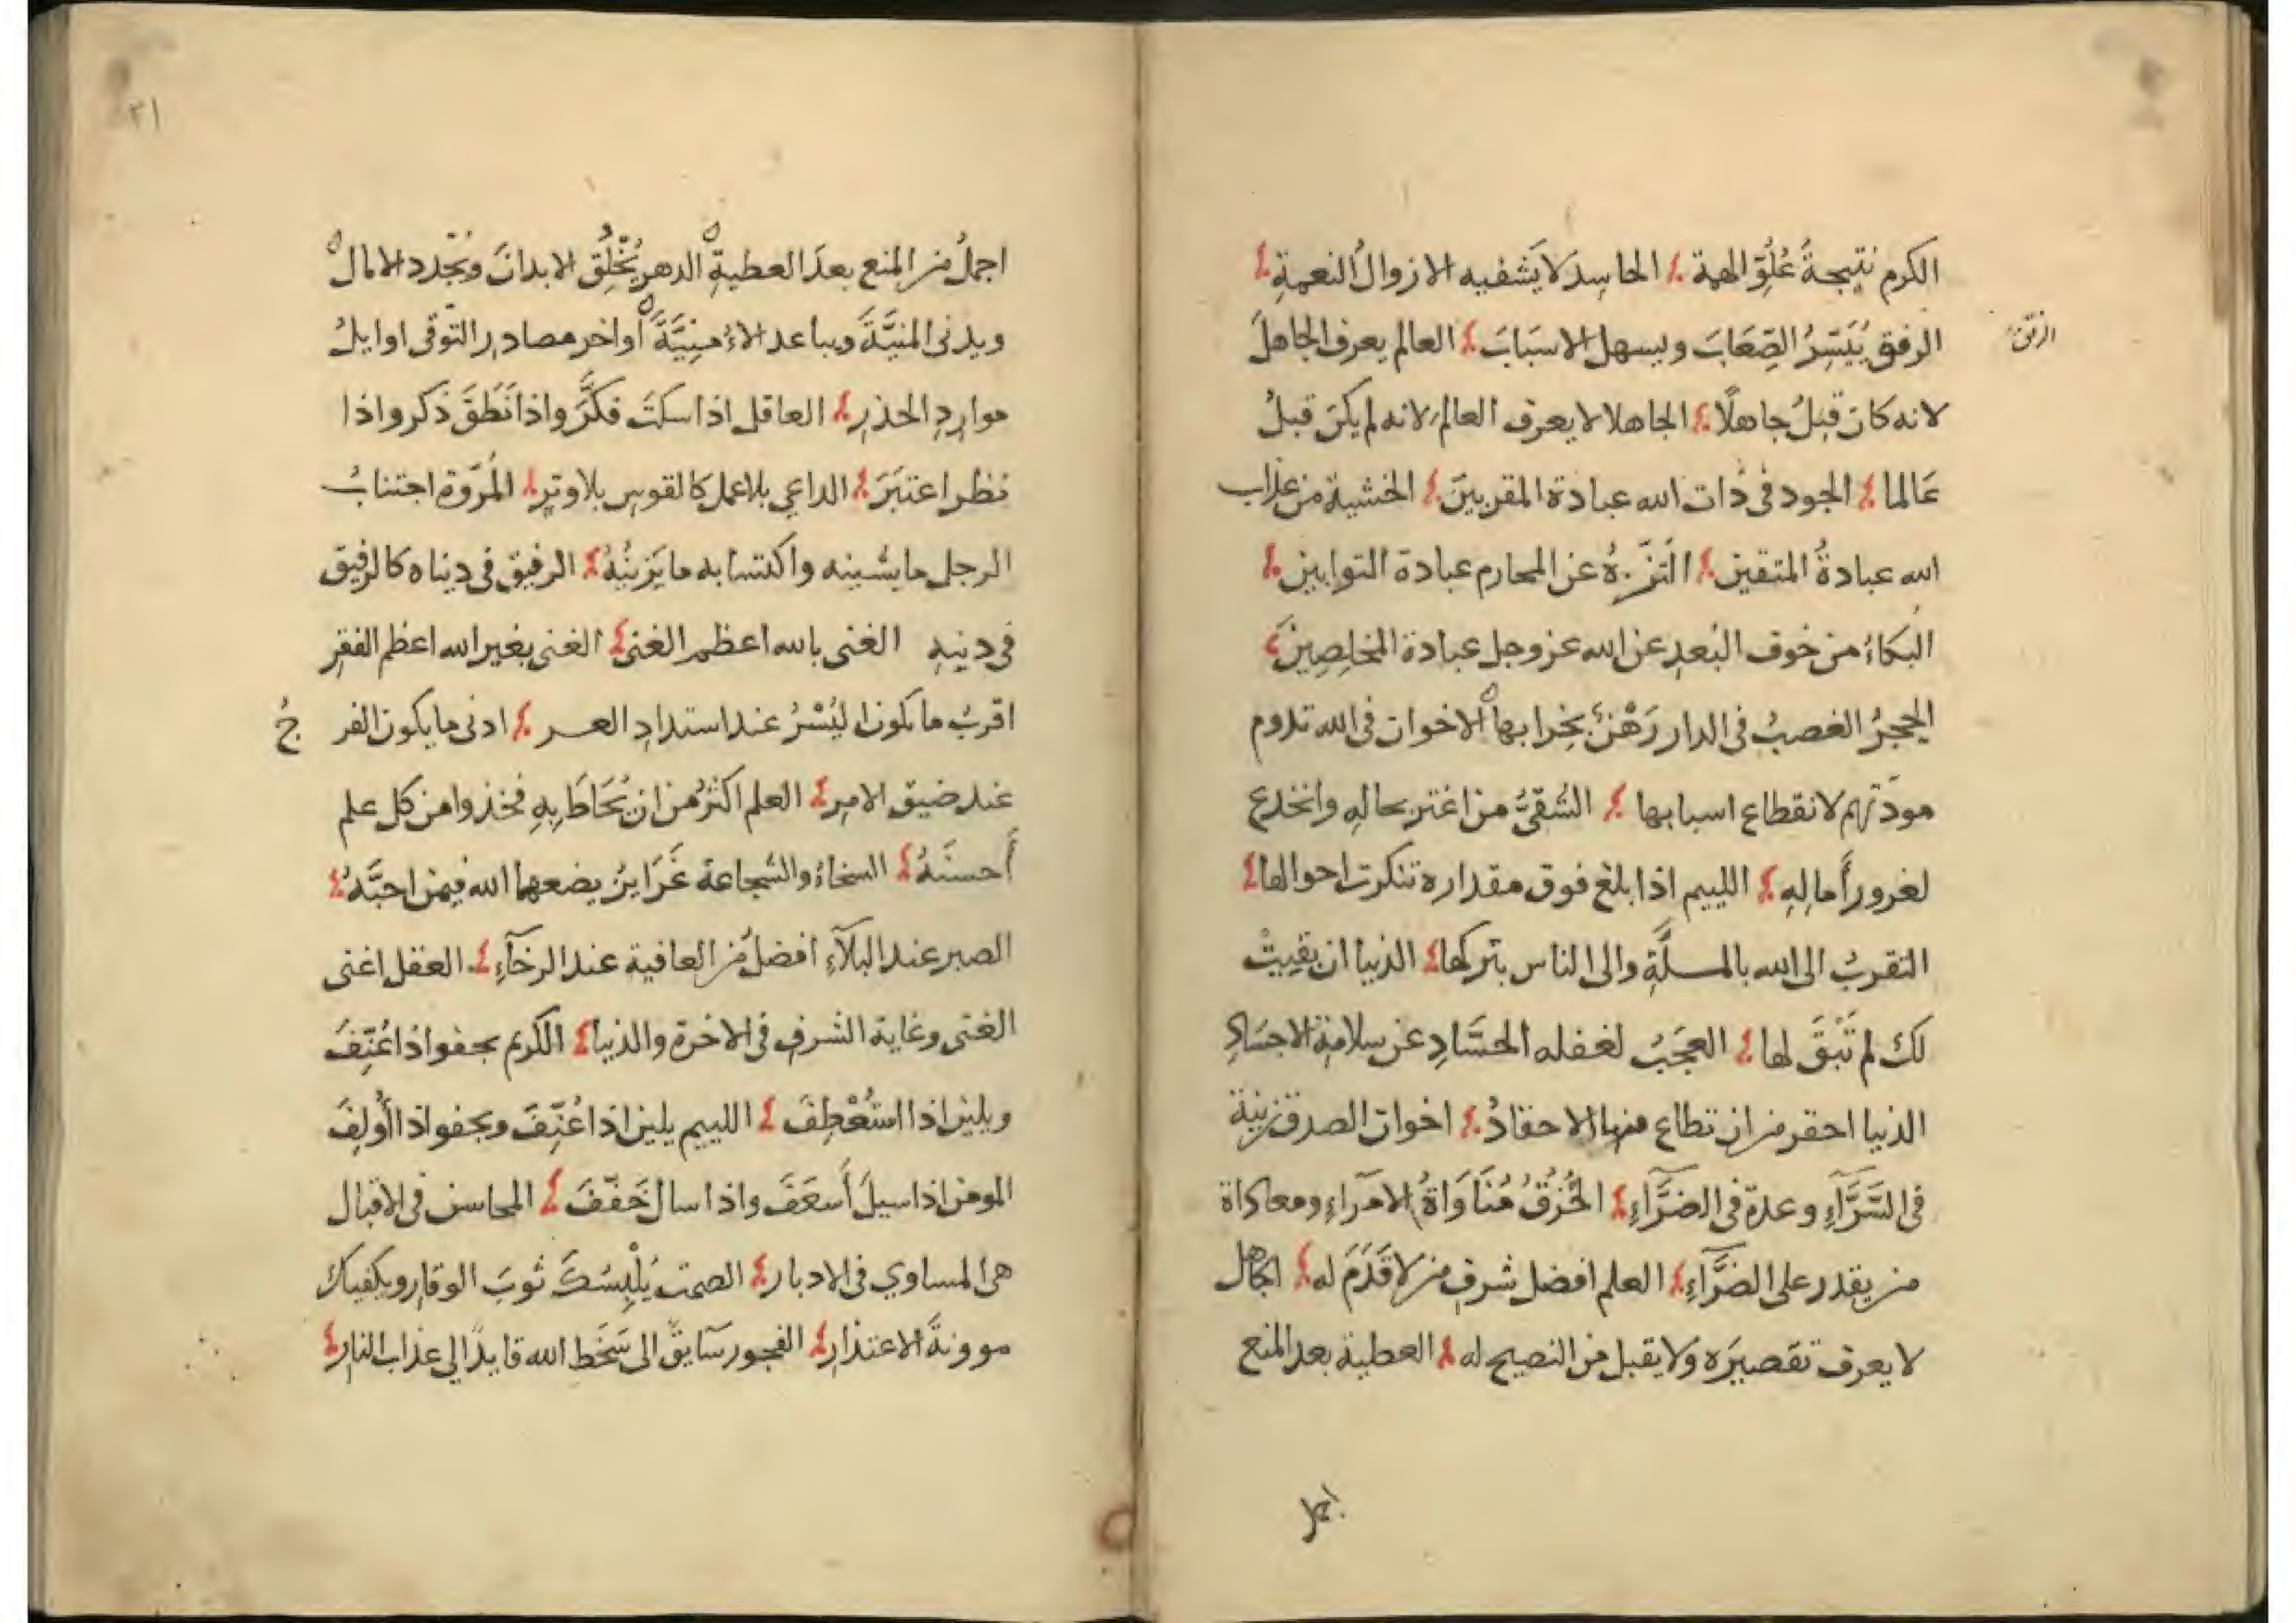 الكرم نتيجةُ عُلُوّ الهمة الحاسِدُ لا يَشفيه الا زوالُ النعمةِ
الرفق يُيَسِّرُ الصِّعَابَ ويسهل الاسبَابَ العالم يعرف الجاهلَ
الرفق
لانه كان قبلُ جاهلًا الجاهلا لا يعرف العالم لانه لم يكن قبلُ
عَالما الجود فى ذات الله عبادة المقربينَ الخشية من عذاب
الله عبادةُ المتقين التنزّهُ عن المحارم عبادة التوابين
البكاءُ من خوف البُعدِ عن الله عز وجل عبادة المخلصِينَ
الحجرُ الغصبُ فى الدار رَهْنٌ بخِرابها الاخوان فى الله تدوم
مودّتهم لانقطاع اسبابها الشقىُّ من اغتر بحالِهِ وانخدع
لغرور أَمالِهِ اللييم اذا بلغ فوق مقداره تنكرت احوالها
التقربُ الى الله بالمسلَّةِ والى الناس بتركها الدنيا ان بقيتْ
لك لم تَبْقَ لها العجَبُ لغفله الحسَّادِ عن سلامة الاجسَادِ
الدنيا احقر من ان تطاع فيها الاحقادُ اخوان الصدق زينة
فى السَّرَّآءِ وعدة فى الضرَّآءِ الخُرْقُ مُنَاوَاةُ الامَراءِ ومعاداة
من يقدر على الضرَّآءِ العلم افضل شرفٍ من لا قَدَمَ له الجاهل
لا يعرف تقصيرَه ولا يقبل من النصيح له العطية بعد المنع
اجمل
٢١
اجملُ من المنع بعدَ العطيةِ الدهر يُخْلِقُ الابدانَ ويُجدد الامال
ويدنى المنيَّةَ ويباعد الاُمنِيَّةَ أواخر مصادر التوقى اوايلُ
مواردِ الحذرِ العاقل اذا سكتَ فكَّرَ واذا نَطَقَ ذكر واذا
نظر اعتبَرَ الداعي بلا عمل كالقوس بلا وترٍ المُروّة اجتنابُ
الرجل ما يشينه واكتسابه ما يَزينُهُ الرفيق فى ديناه كالرفيق
فى دينهِ الغنى بالله اعظم الغنى الغنى بغير الله اعظم الفقرِ
اقربُ ما يكون اليُسْرُ عند استدادِ العسر ادنى ما يكون الفر جُ
عند ضيق الامرِ العلم اكثرُ من ان يُحَاطَ بِهِ فخذوا من كل علم
أَحسنَهُ السخاءُ والشجاعة غَرَايزُ يضعها الله فيمن احبَّهُ
الصبر عند البلآءِ افضلُ من العافية عند الرخآءِ العقل اغنى
الغنى وغاية الشرفِ فى الاخرة والدنيا الكريم يجفو اذا عُنِّفَ
ويلين اذا استُعْطِفَ اللييم يلين اذا عُنِّفَ ويجفو اذا أُولِفَ
المومن اذا سيلَ أَسعَفَ واذا سال خَفّفَ المحاسن فى الاقبال
هى المساوي فى الادبار الصمت يُلْبِسُكَ ثوبَ الوقارِ ويكفيك
موونةَ الاعتذارِ الفجور سَايقٌ الى سَخَطِ الله قايدٌ الي عذاب النارِ